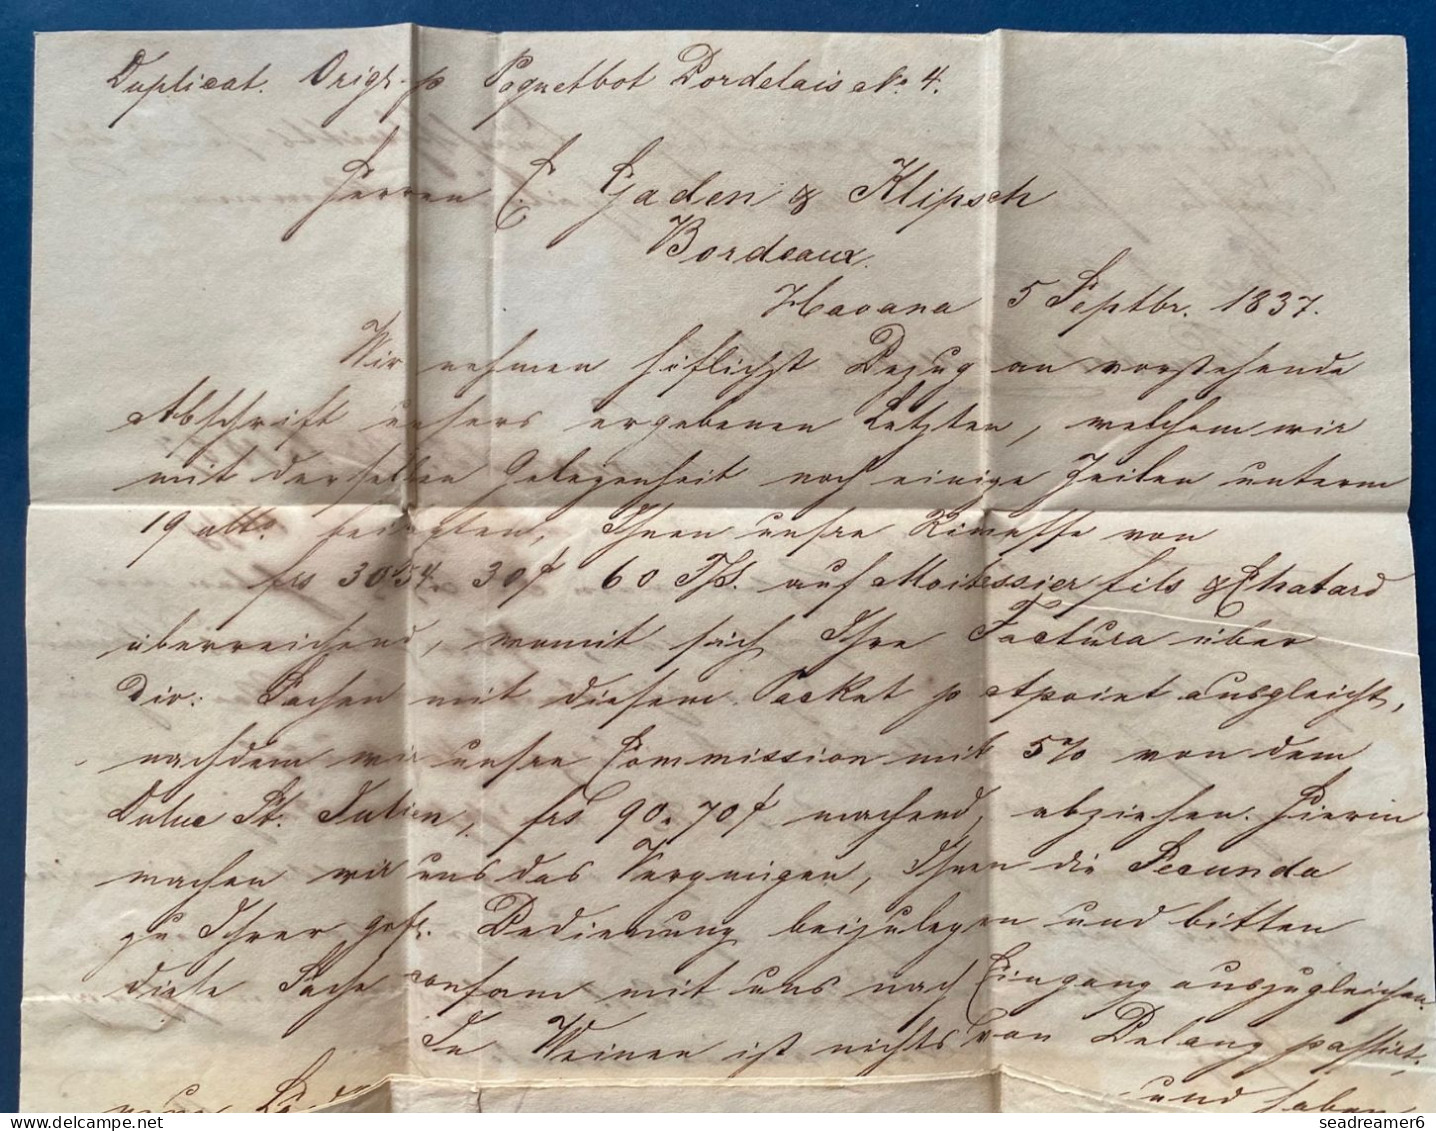 Duplicat. Orig. p Paquetbot Bordelais No. 4.
Herren E. Gaden & Klipsch
Bordeaux.
Havana 5 Septbr. 1837.
Wir nehmen höflichst Bezug an vorstehende
Abschrift unsers ergebenen Letzten, welchem wir
mit derselben Gelegenheit noch einige Zeilen unterm
19 allo. Ihnen unsre Rimesse von
frs 3054. 30 f 60 T/S. auf Moitessier fils & Chatard
überreichend, womit sich Ihre Factura über
div. Sachen mit diesem Packet p Apoint ausgleicht,
nachdem wir unsre Commission mit 5% von dem
Duluc St. Julien, frs 90. 70 f machend, abziehen. Hierin
machen wir uns das Vergnügen, Ihnen die Secunda
zu Ihrer gefl. Bedienung beizulegen und bitten
diese Sache conform mit uns nach Eingang auszugleichen.
In Weinen ist nichts von Belang passirt,
und haben
seadreamer6